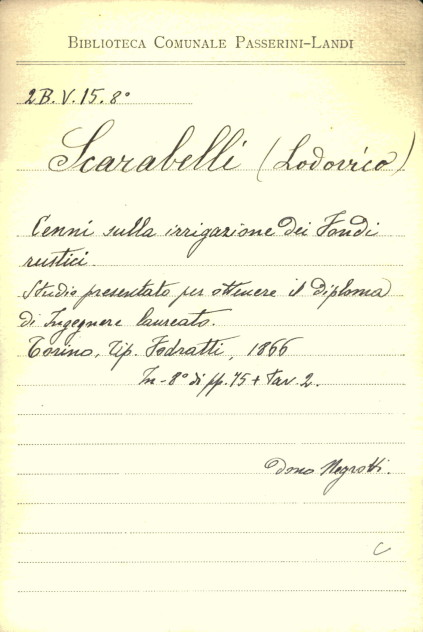 BIBLIOTECA COMUNALE PASSERINI-LANDI
2B.V.15.8°
Scarabelli (Lodovico)
Cenni sulla irrigazione dei Fondi
rustici.
Studio presentato per ottenere il diploma
di Ingegnere laureato.
Torino, Tip. Fodratti, 1866
In-8° di pp. 45 + tav. 2.
Dono Negrotti.
C